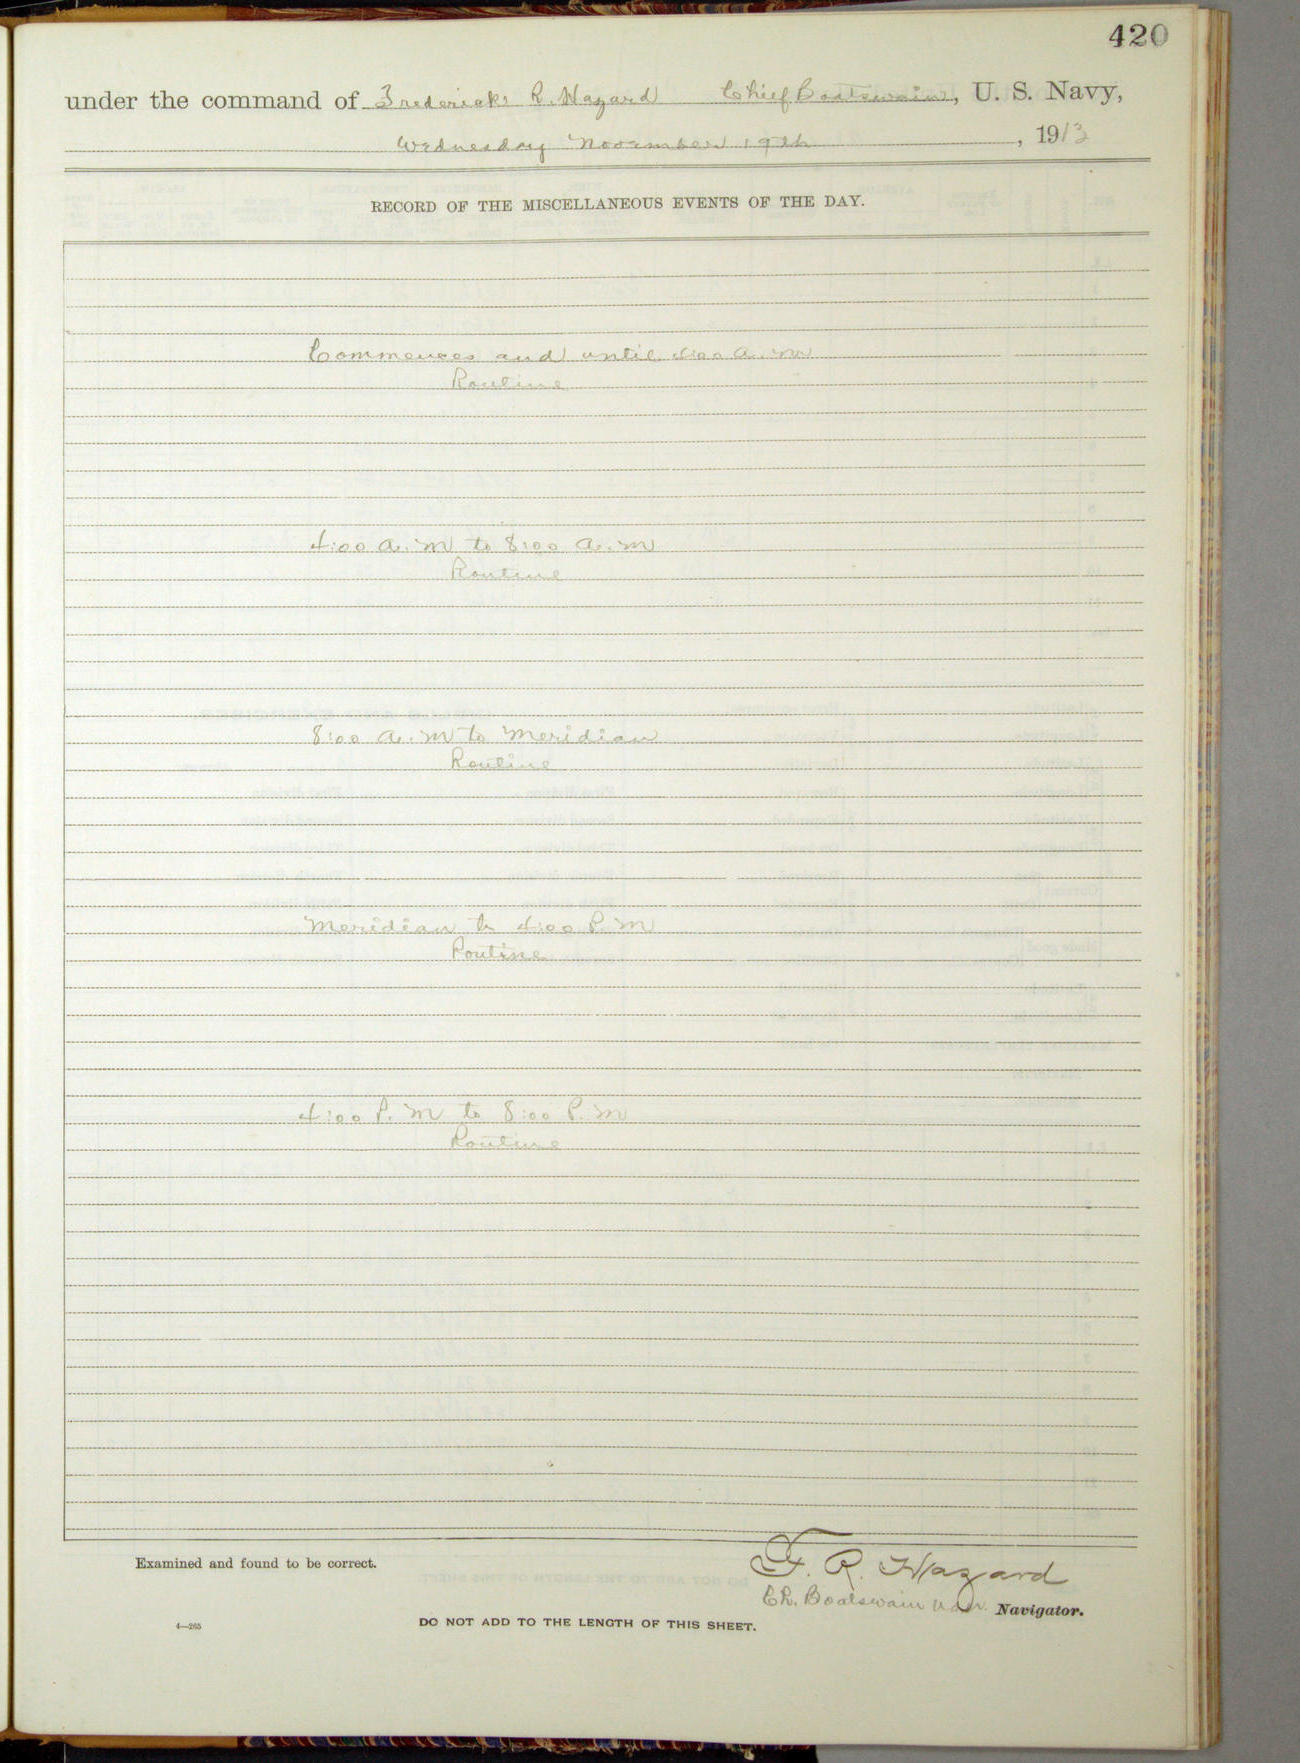 420
under the command of Frederick R. Hazard Chief Boatswain, U. S. Navy,
Wednesday November 19th, 1913
RECORD OF THE MISCELLANEOUS EVENTS OF THE DAY.
Commences and until 4:00 a.m
Routine
4:00 a.m to 8:00 a.m
Routine
8:00 a.m to Meridian
Routine
Meridian to 4:00 P.M
Routine
4:00 P.M to 8:00 P.M
Routine
Examined and found to be correct.
F. R. Hazard
Ch. Boatswain U.S.N. Navigator.
4—265
DO NOT ADD TO THE LENGTH OF THIS SHEET.